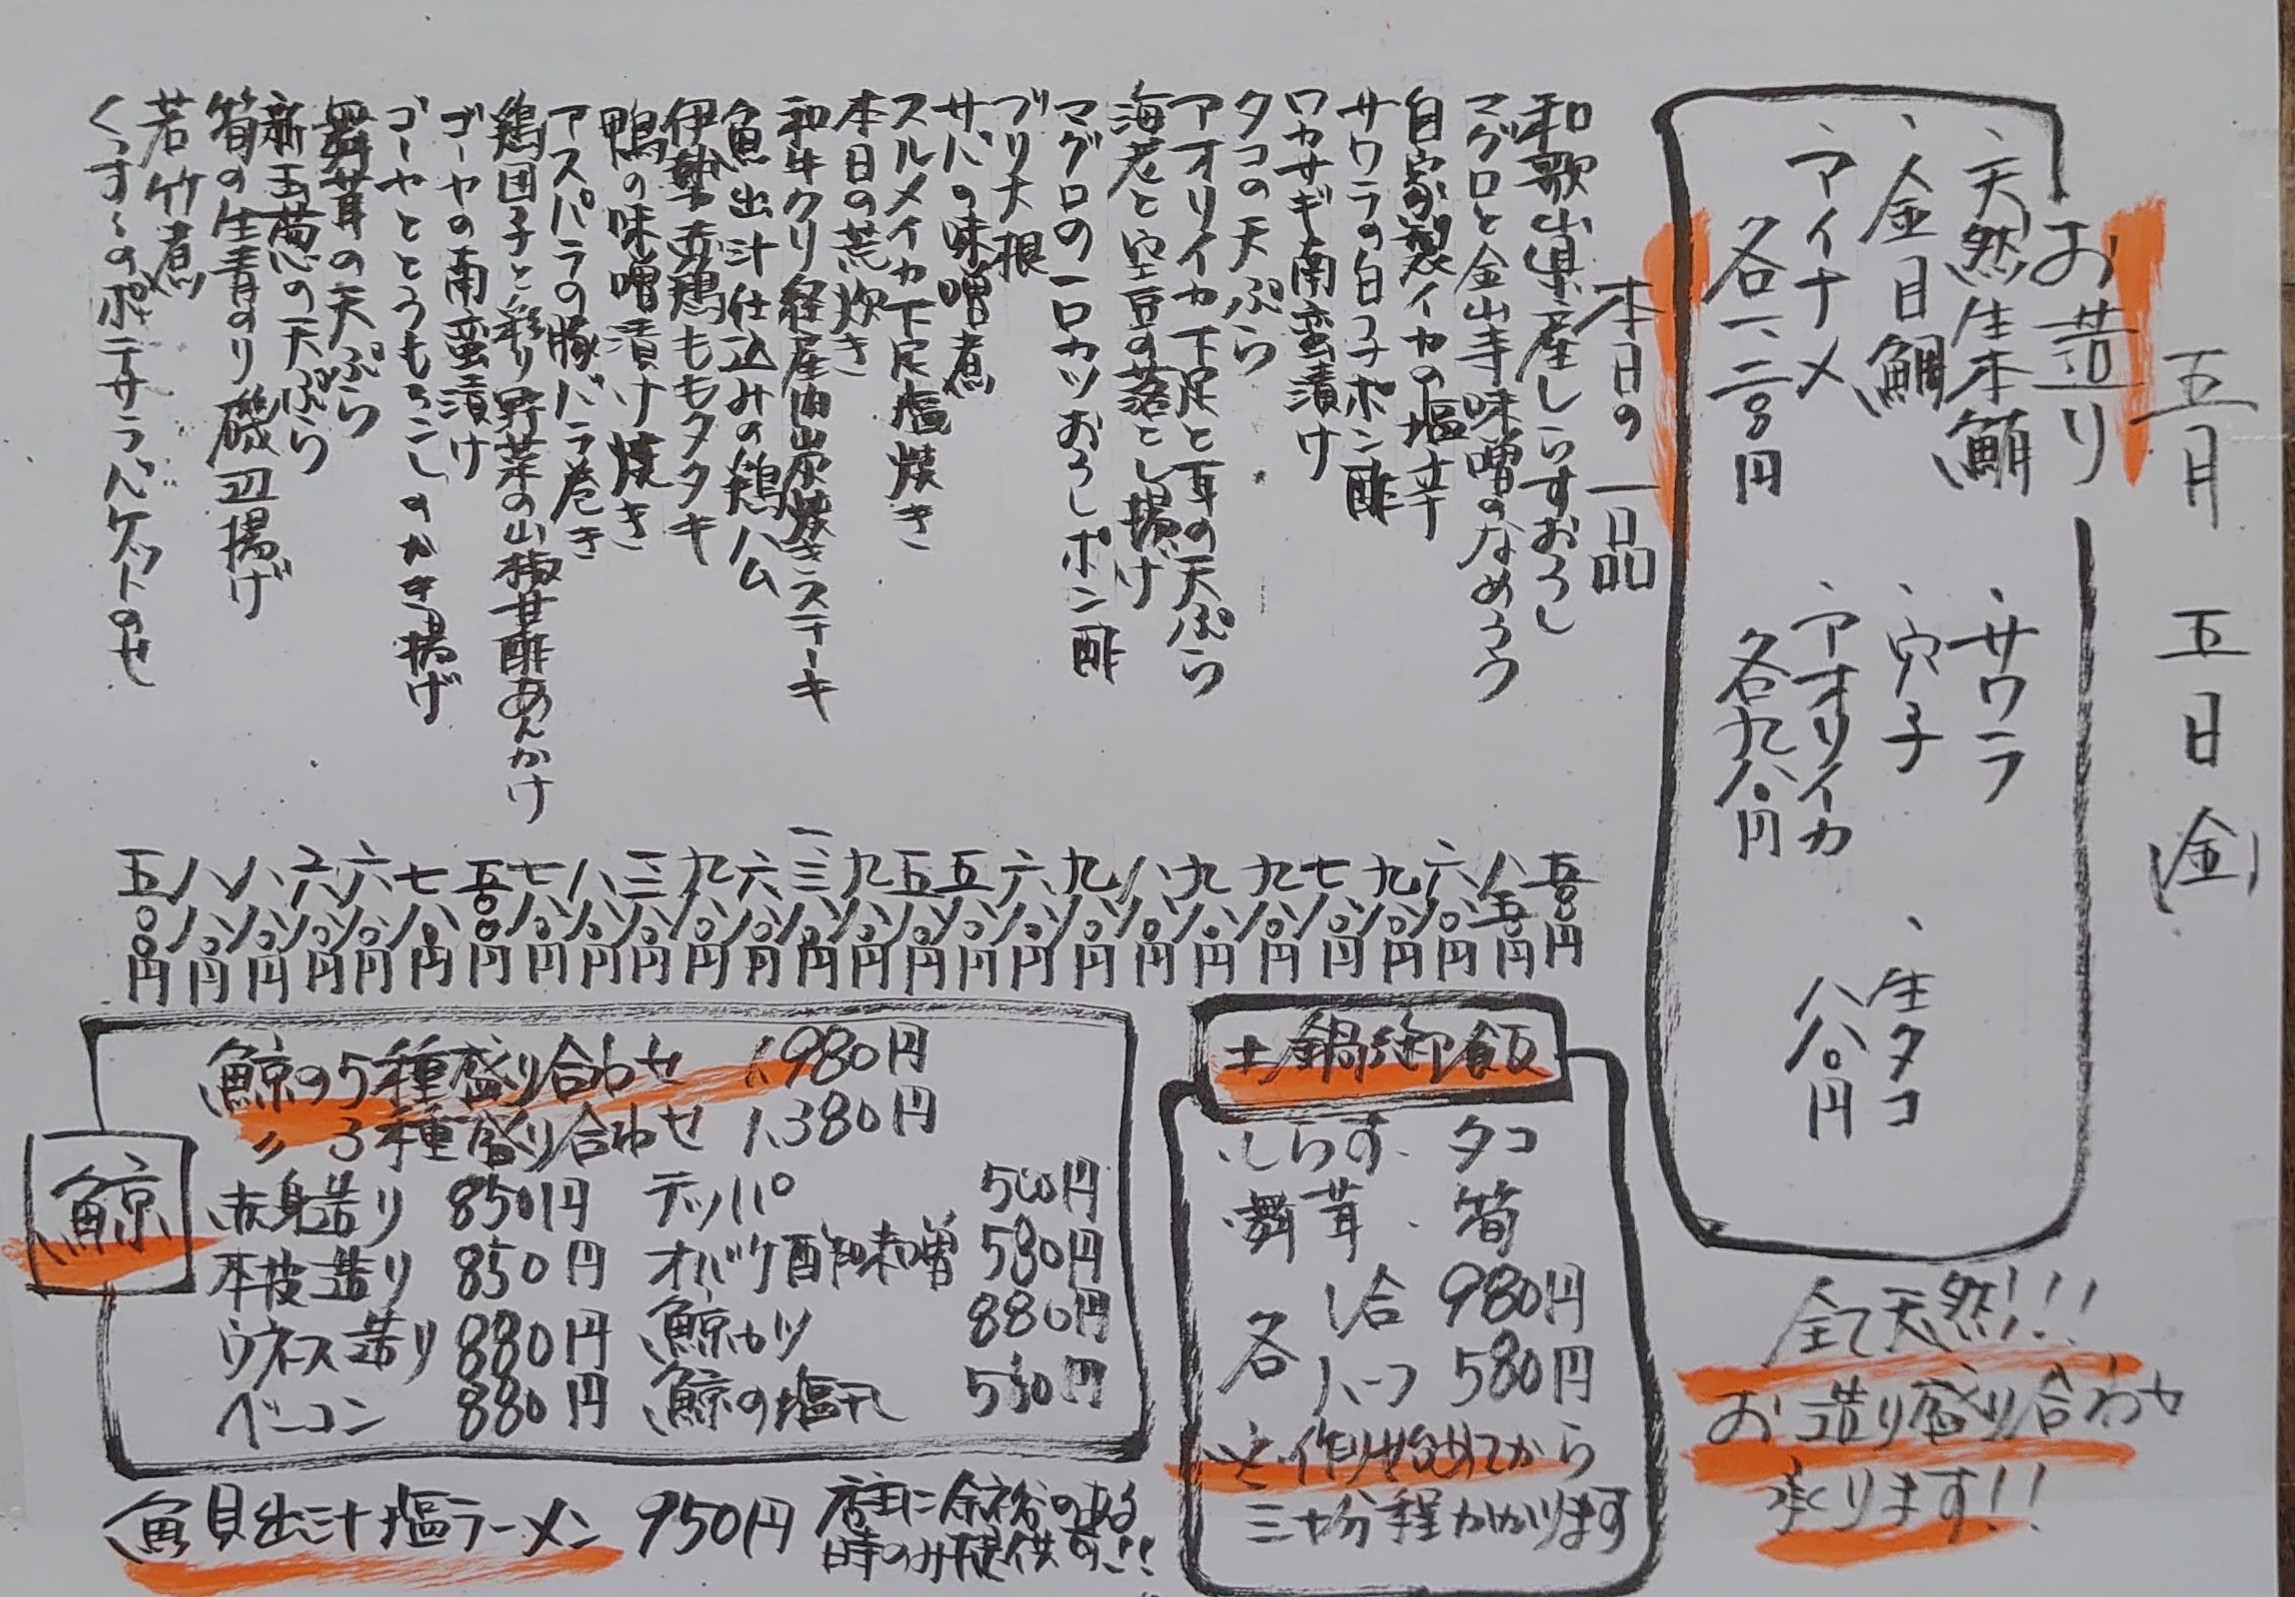 五月五日(金)
お造り
、天然生本鮪
、金目鯛
、アイナメ
各一、二八〇円
、サワラ
、穴子
、アオリイカ
各九八〇円
、生タコ
八八〇円
全て天然!!!
お造り盛り合わせ
承ります!!
本日の一品
和歌山県産しらすおろし 五八〇円
マグロと金山寺味噌のなめろう 八五〇円
自家製イカの塩辛 六八〇円
サワラの白子ポン酢 九八〇円
ワカサギ南蛮漬け 七八〇円
タコの天ぷら 九八〇円
アオリイカ下足と耳の天ぷら 九八〇円
海老と空豆の落とし揚げ 八八〇円
マグロの一口カツおろしポン酢 九八〇円
ブリ大根 六八〇円
サバの味噌煮 五八〇円
スルメイカ下足塩焼き 五八〇円
本日の荒炊き 九八〇円
和牛クリ経産肉炭焼きステーキ 一、三八〇円
魚出汁仕込みの鶏ハム 六八〇円
伊勢赤鶏ももタタキ 九八〇円
鴨の味噌漬け焼き
アスパラの豚バラ巻き 八八〇円
鶏団子と彩り野菜の山椒甘酢あんかけ 七八〇円
ゴーヤの南蛮漬け 五八〇円
ゴーヤととうもろこしのかき揚げ 七八〇円
舞茸の天ぷら 六八〇円
新玉葱の天ぷら 六八〇円
筍の生青のり磯辺揚げ 八八〇円
若竹煮 八八〇円
くっすくのポテサラバケットのせ 五〇〇円
土鍋御飯
、しらす、タコ
、舞茸、筍
各 1合 980円
ハーフ 580円
※作り始めてから
三十分程かかります
鯨
鯨の5種盛り合わせ 1,980円
〃 3種盛り合わせ 1,380円
赤身造り 850円 テッパ 500円
本皮造り 850円 オバケ酢味噌 580円
ウネス造り 880円 鯨カツ 880円
ベーコン 880円 鯨の塩干 580円
魚貝出汁塩ラーメン 950円 店主に余裕のある
時のみ提供可!!